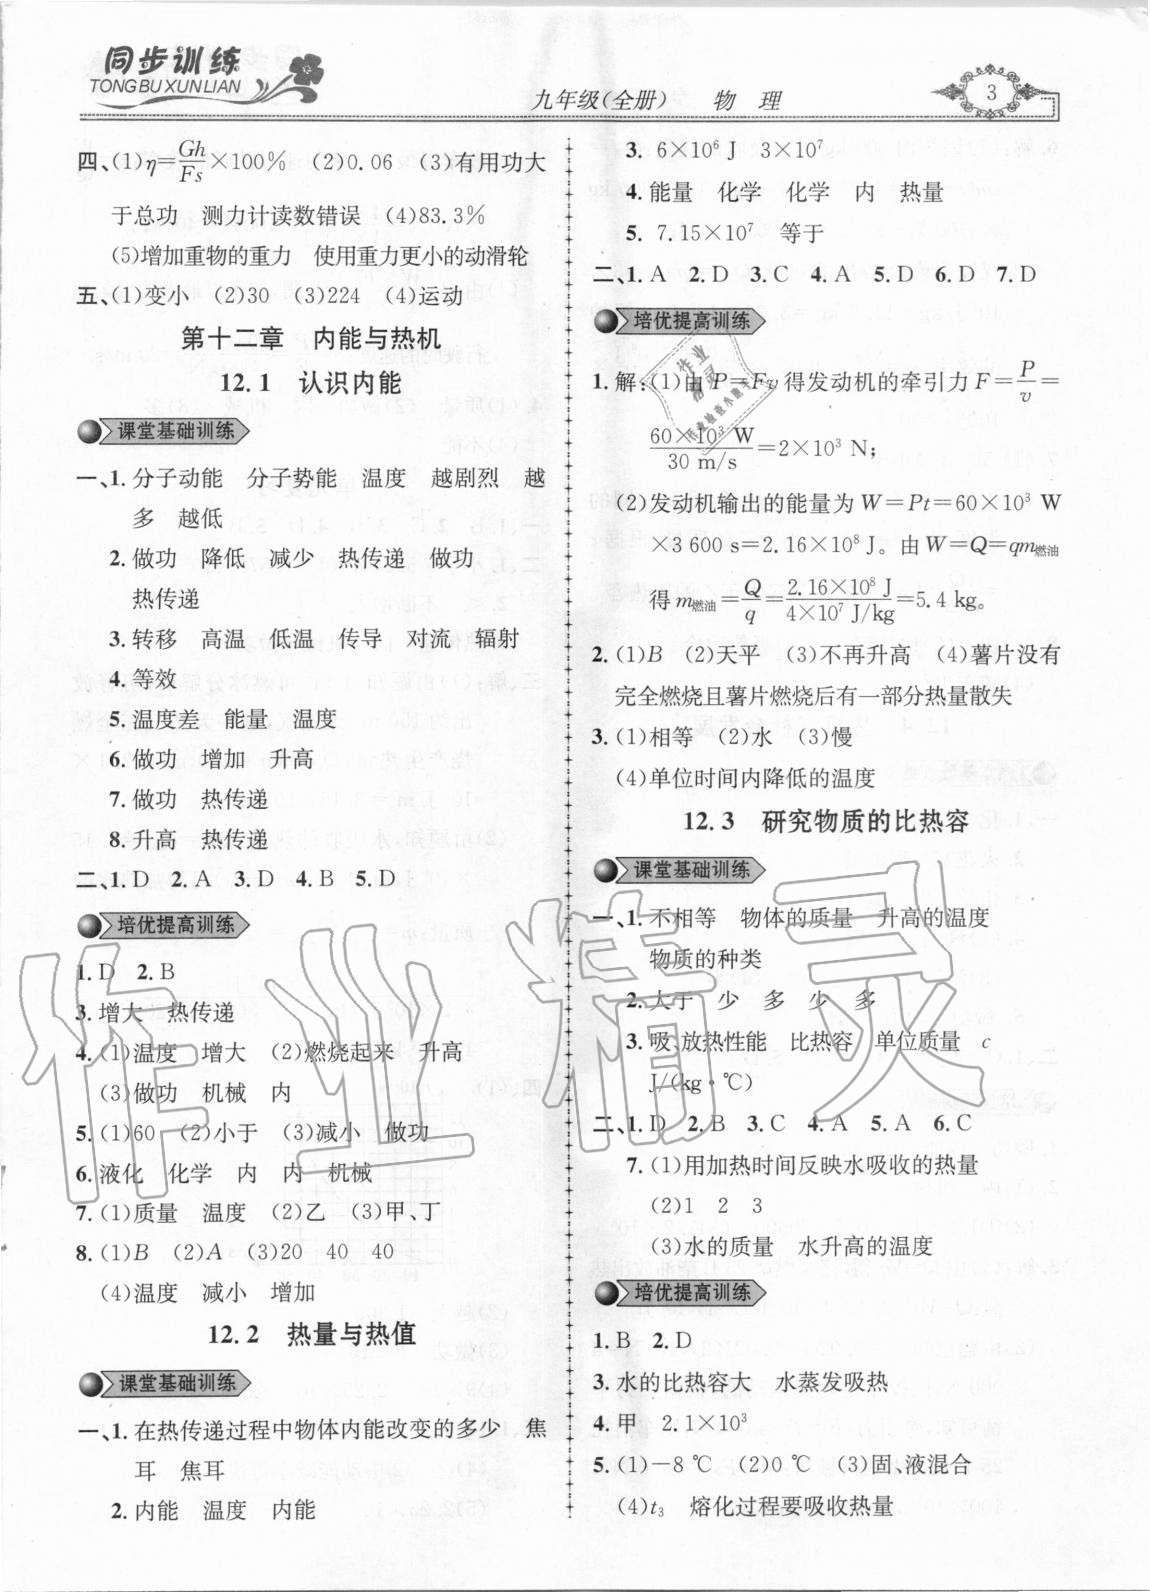 同步训练
TONGBUXUNLIAN
九年级(全册) 物理
3
四、(1)η=Gh/Fs×100% (2)0.06 (3)有用功大
于总功 测力计读数错误 (4)83.3%
(5)增加重物的重力 使用重力更小的动滑轮
五、(1)变小 (2)30 (3)224 (4)运动
第十二章 内能与热机
12.1 认识内能
课堂基础训练
一、1.分子动能 分子势能 温度 越剧烈 越
多 越低
2.做功 降低 减少 热传递 做功
热传递
3.转移 高温 低温 传导 对流 辐射
4.等效
5.温度差 能量 温度
6.做功 增加 升高
7.做功 热传递
8.升高 热传递
二、1.D 2.A 3.D 4.B 5.D
培优提高训练
1.D 2.B
3.增大 热传递
4.(1)温度 增大 (2)燃烧起来 升高
(3)做功 机械 内
5.(1)60 (2)小于 (3)减小 做功
6.液化 化学 内 内 机械
7.(1)质量 温度 (2)乙 (3)甲、丁
8.(1)B (2)A (3)20 40 40
(4)温度 减小 增加
12.2 热量与热值
课堂基础训练
一、1.在热传递过程中物体内能改变的多少 焦
耳 焦耳
2.内能 温度 内能
3.6×10⁶ J 3×10⁷
4.能量 化学 化学 内 热量
5.7.15×10⁷ 等于
二、1.A 2.D 3.C 4.A 5.D 6.D 7.D
培优提高训练
1.解:(1)由 P=Fv得发动机的牵引力 F=P/v=
60×10³ W/30 m/s=2×10³ N;
(2)发动机输出的能量为 W=Pt=60×10³ W
×3 600 s=2.16×10⁸ J。由 W=Q=qm燃油
得 m燃油=Q/q=2.16×10⁸ J/4×10⁷ J/kg=5.4 kg。
2.(1)B (2)天平 (3)不再升高 (4)薯片没有
完全燃烧且薯片燃烧后有一部分热量散失
3.(1)相等 (2)水 (3)慢
(4)单位时间内降低的温度
12.3 研究物质的比热容
课堂基础训练
一、1.不相等 物体的质量 升高的温度
物质的种类
2.大于 少 多 少 多
3.吸、放热性能 比热容 单位质量 c
J/(kg·℃)
二、1.D 2.B 3.C 4.A 5.A 6.C
7.(1)用加热时间反映水吸收的热量
(2)1 2 3
(3)水的质量 水升高的温度
培优提高训练
1.B 2.D
3.水的比热容大 水蒸发吸热
4.甲 2.1×10³
5.(1)-8 ℃ (2)0 ℃ (3)固、液混合
(4)t₃ 熔化过程要吸收热量
作业精灵